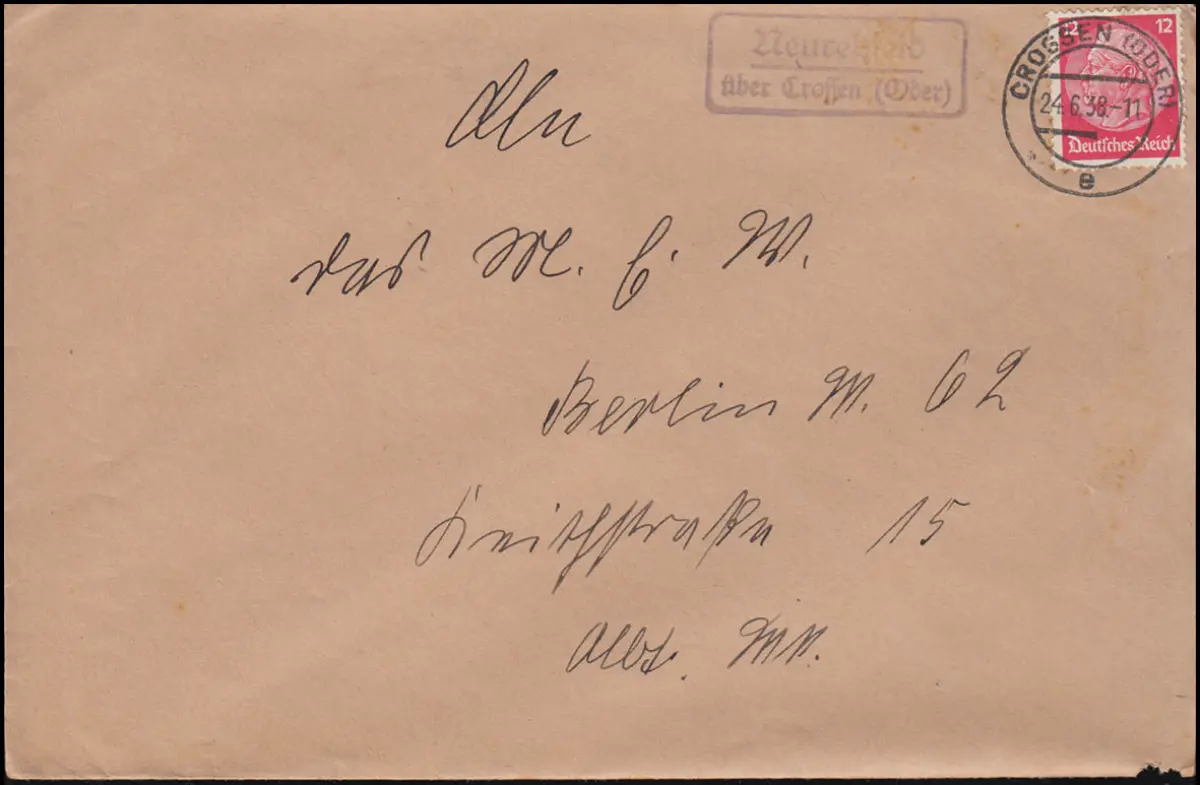 über Crossen (Oder)
12 12
CROSSEN (ODER)
24.6.38.-11
e
Deutsches Reich
An
das M. E. W.
Berlin W. 62
Keithstraße 15
Abt.